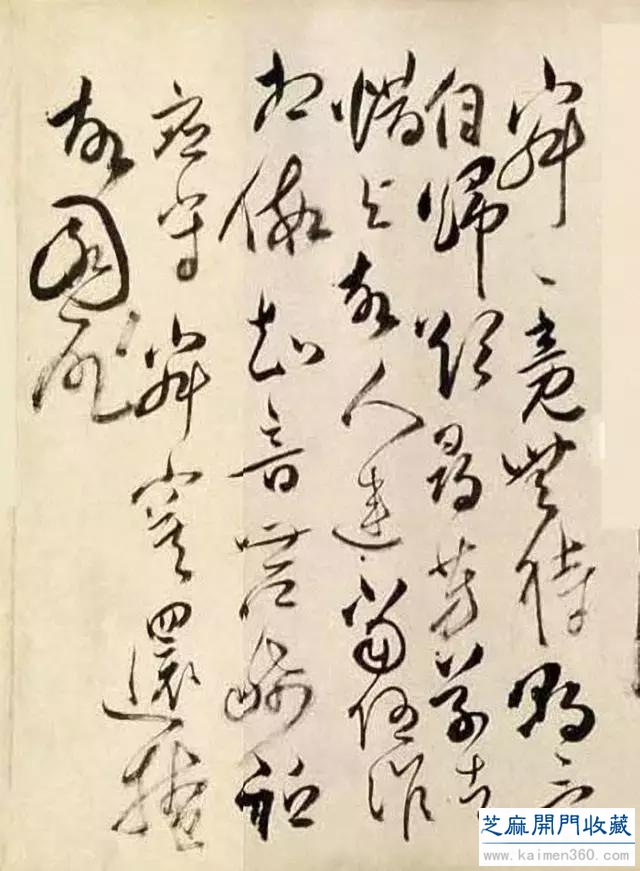 寂〻竟無待朝〻
自歸欲尋芳草去
惜与故人違當路誰
相假知音世所稀祇
應守寂寞還掩
故園扉
芝麻開門收藏
www.kaimen360.com